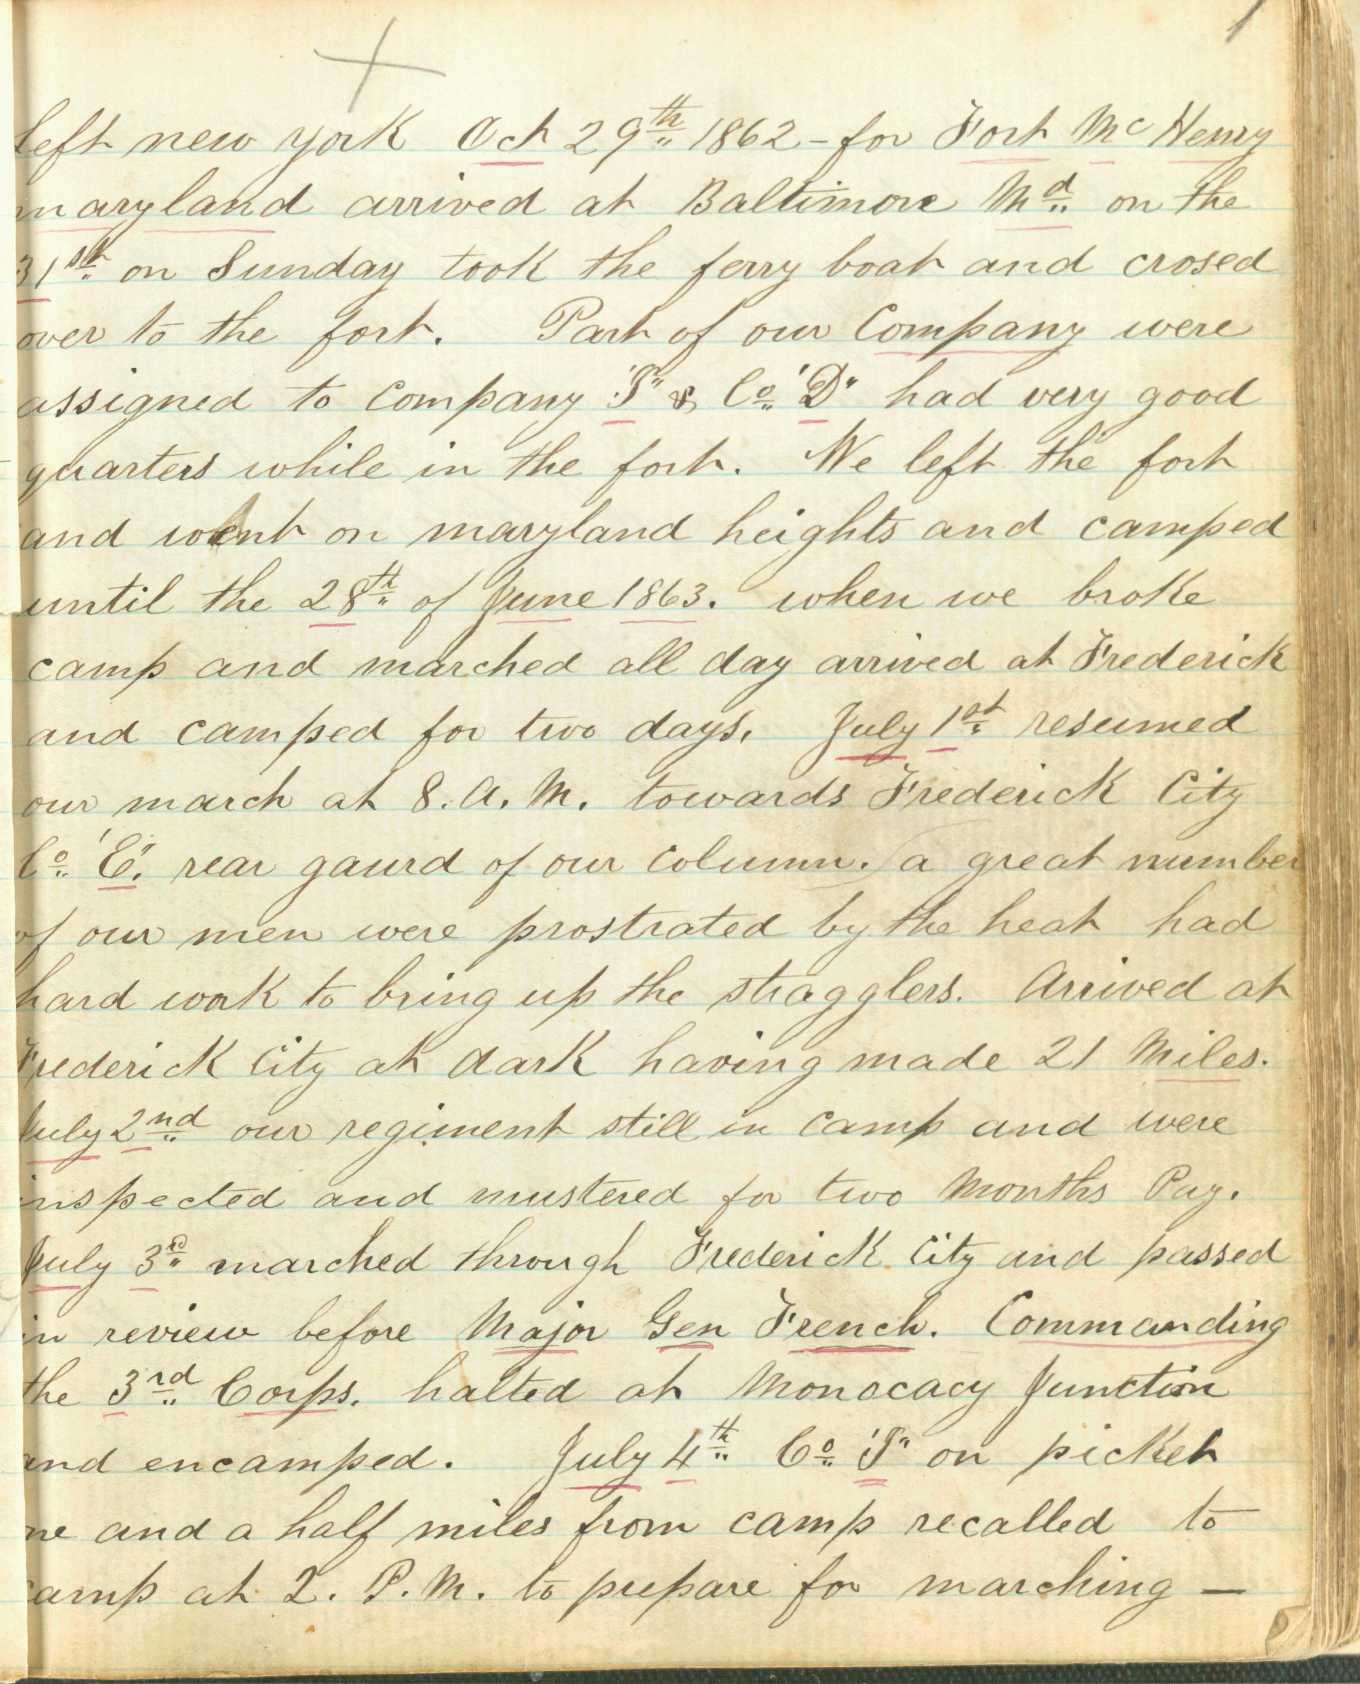 1
left new york Oct 29th 1862 - for Fort Mc Henry
maryland arrived at Baltimore Md on the
31st on Sunday took the ferry boat and crosed
over to the fort. Part of our Company were
assigned to Company "I" & Co "D" had very good
quarters while in the fort. We left the fort
and went on maryland heights and camped
until the 28th of June 1863. when we broke
camp and marched all day arrived at Frederick
and camped for two days. July 1st resumed
our march at 8. A. M. towards Frederick City
Co "E". rear gaurd of our column. a great number
of our men were prostrated by the heat had
hard work to bring up the stragglers. Arrived at
Frederick City at dark having made 21 Miles.
July 2nd our regiment still in camp and were
inspected and mustered for two Months Pay.
July 3d marched through Frederick City and passed
in review before Major Gen French. Commanding
the 3rd Corps. halted at Monocacy Junction
and encamped. July 4th Co "I" on picket
ne and a half miles from camp recalled to
camp at 2. P. M. to prepare for marching —